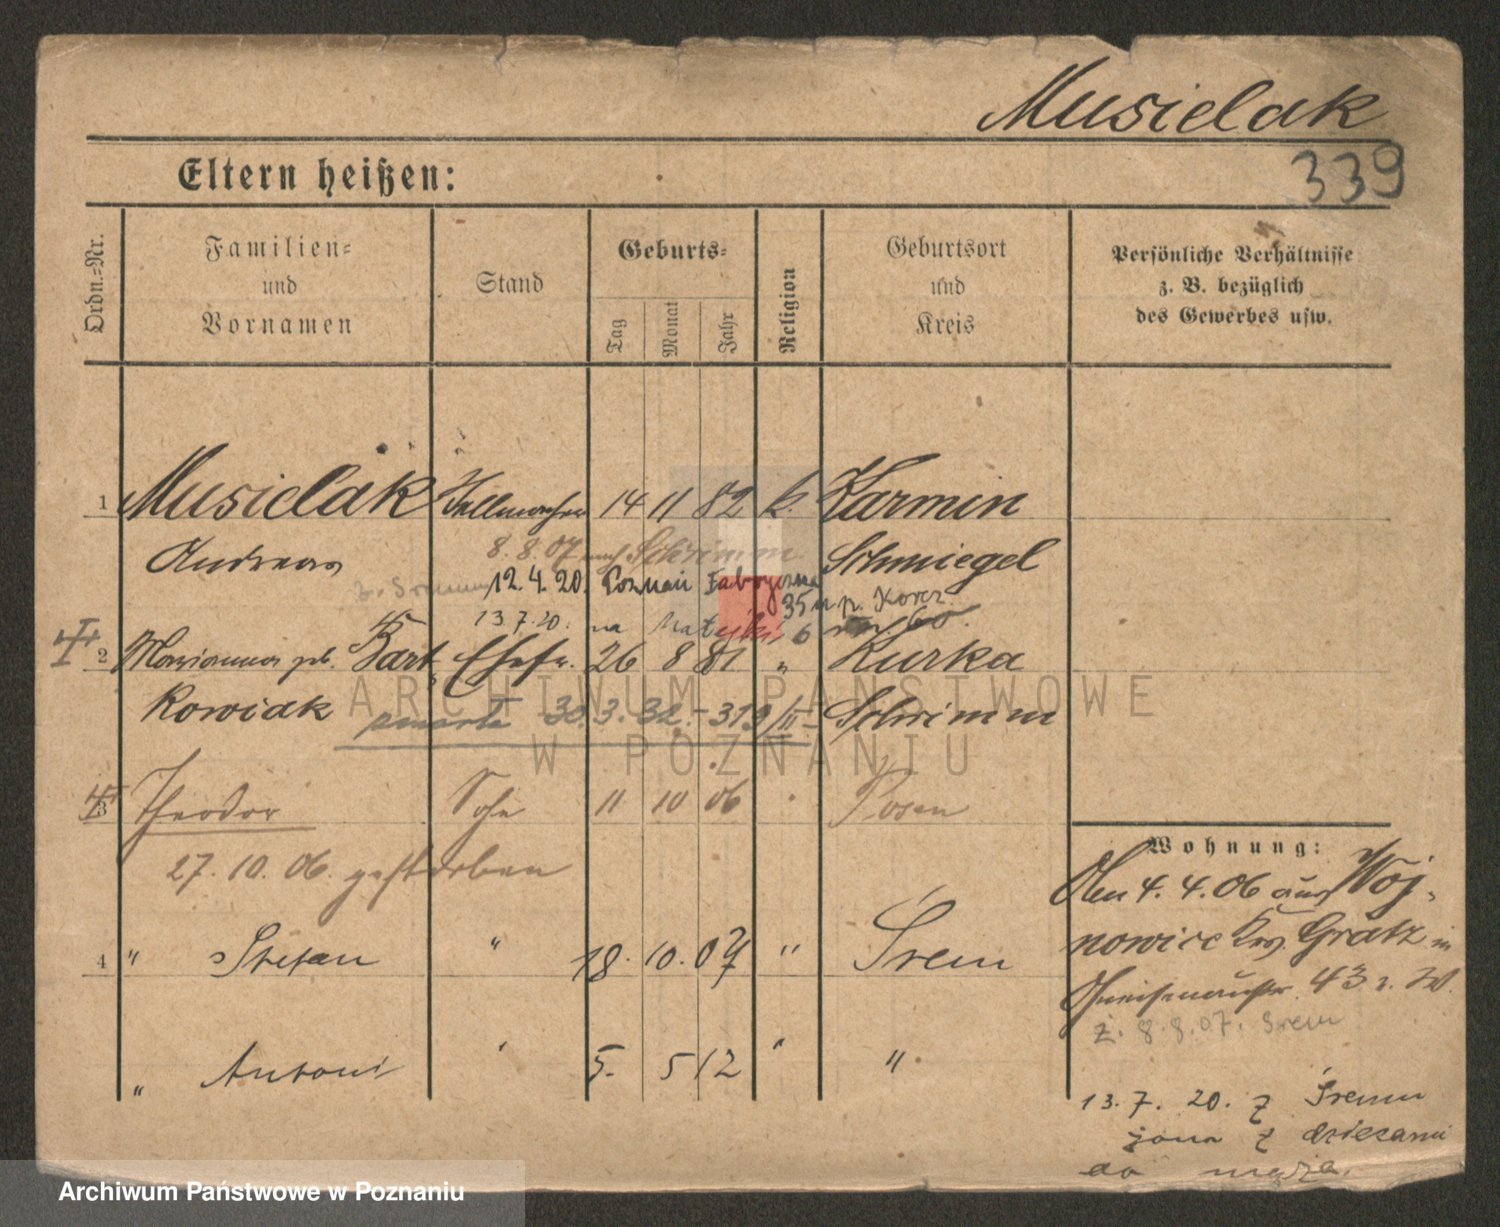 Musielak
339
Eltern heißen:
Ordn.-Nr.
Familien-
und
Vornamen
Stand
Geburts-
Tag
Monat
Jahr
Religion
Geburtsort
und
Kreis
Persönliche Verhältnisse
z. B. bezüglich
des Gewerbes usw.
1 Musielak 14 11 82 k. Karmin
Andreas 8.8.07 nach Schrimm Schmiegel
z. Śremu 12.4.20. Poznań Fabryczna
35 u p. Korcz.
13.7.20. na Matejki 6
2 Marianna geb. Bart Ehefr. 26 8 81 " Kurka
Kowiak zmarła 30.3.32.-319/II Schrimm
3 Theodor Sohn 11 10 06 Posen
27.10.06. gestorben
4 " Stefan " 18. 10. 07 " Śrem
" Antoni 5. 5 12 " "
Wohnung:
Den 4.4.06 aus Woj-
nowice Krs. Grätz in
Gneisenaustr. 43 b. W.
z. 8.8.07. Śrem
13.7.20. z Śremu
żona z dziećmi
do męża.
ARCHIWUM PAŃSTWOWE
W POZNANIU
Archiwum Państwowe w Poznaniu